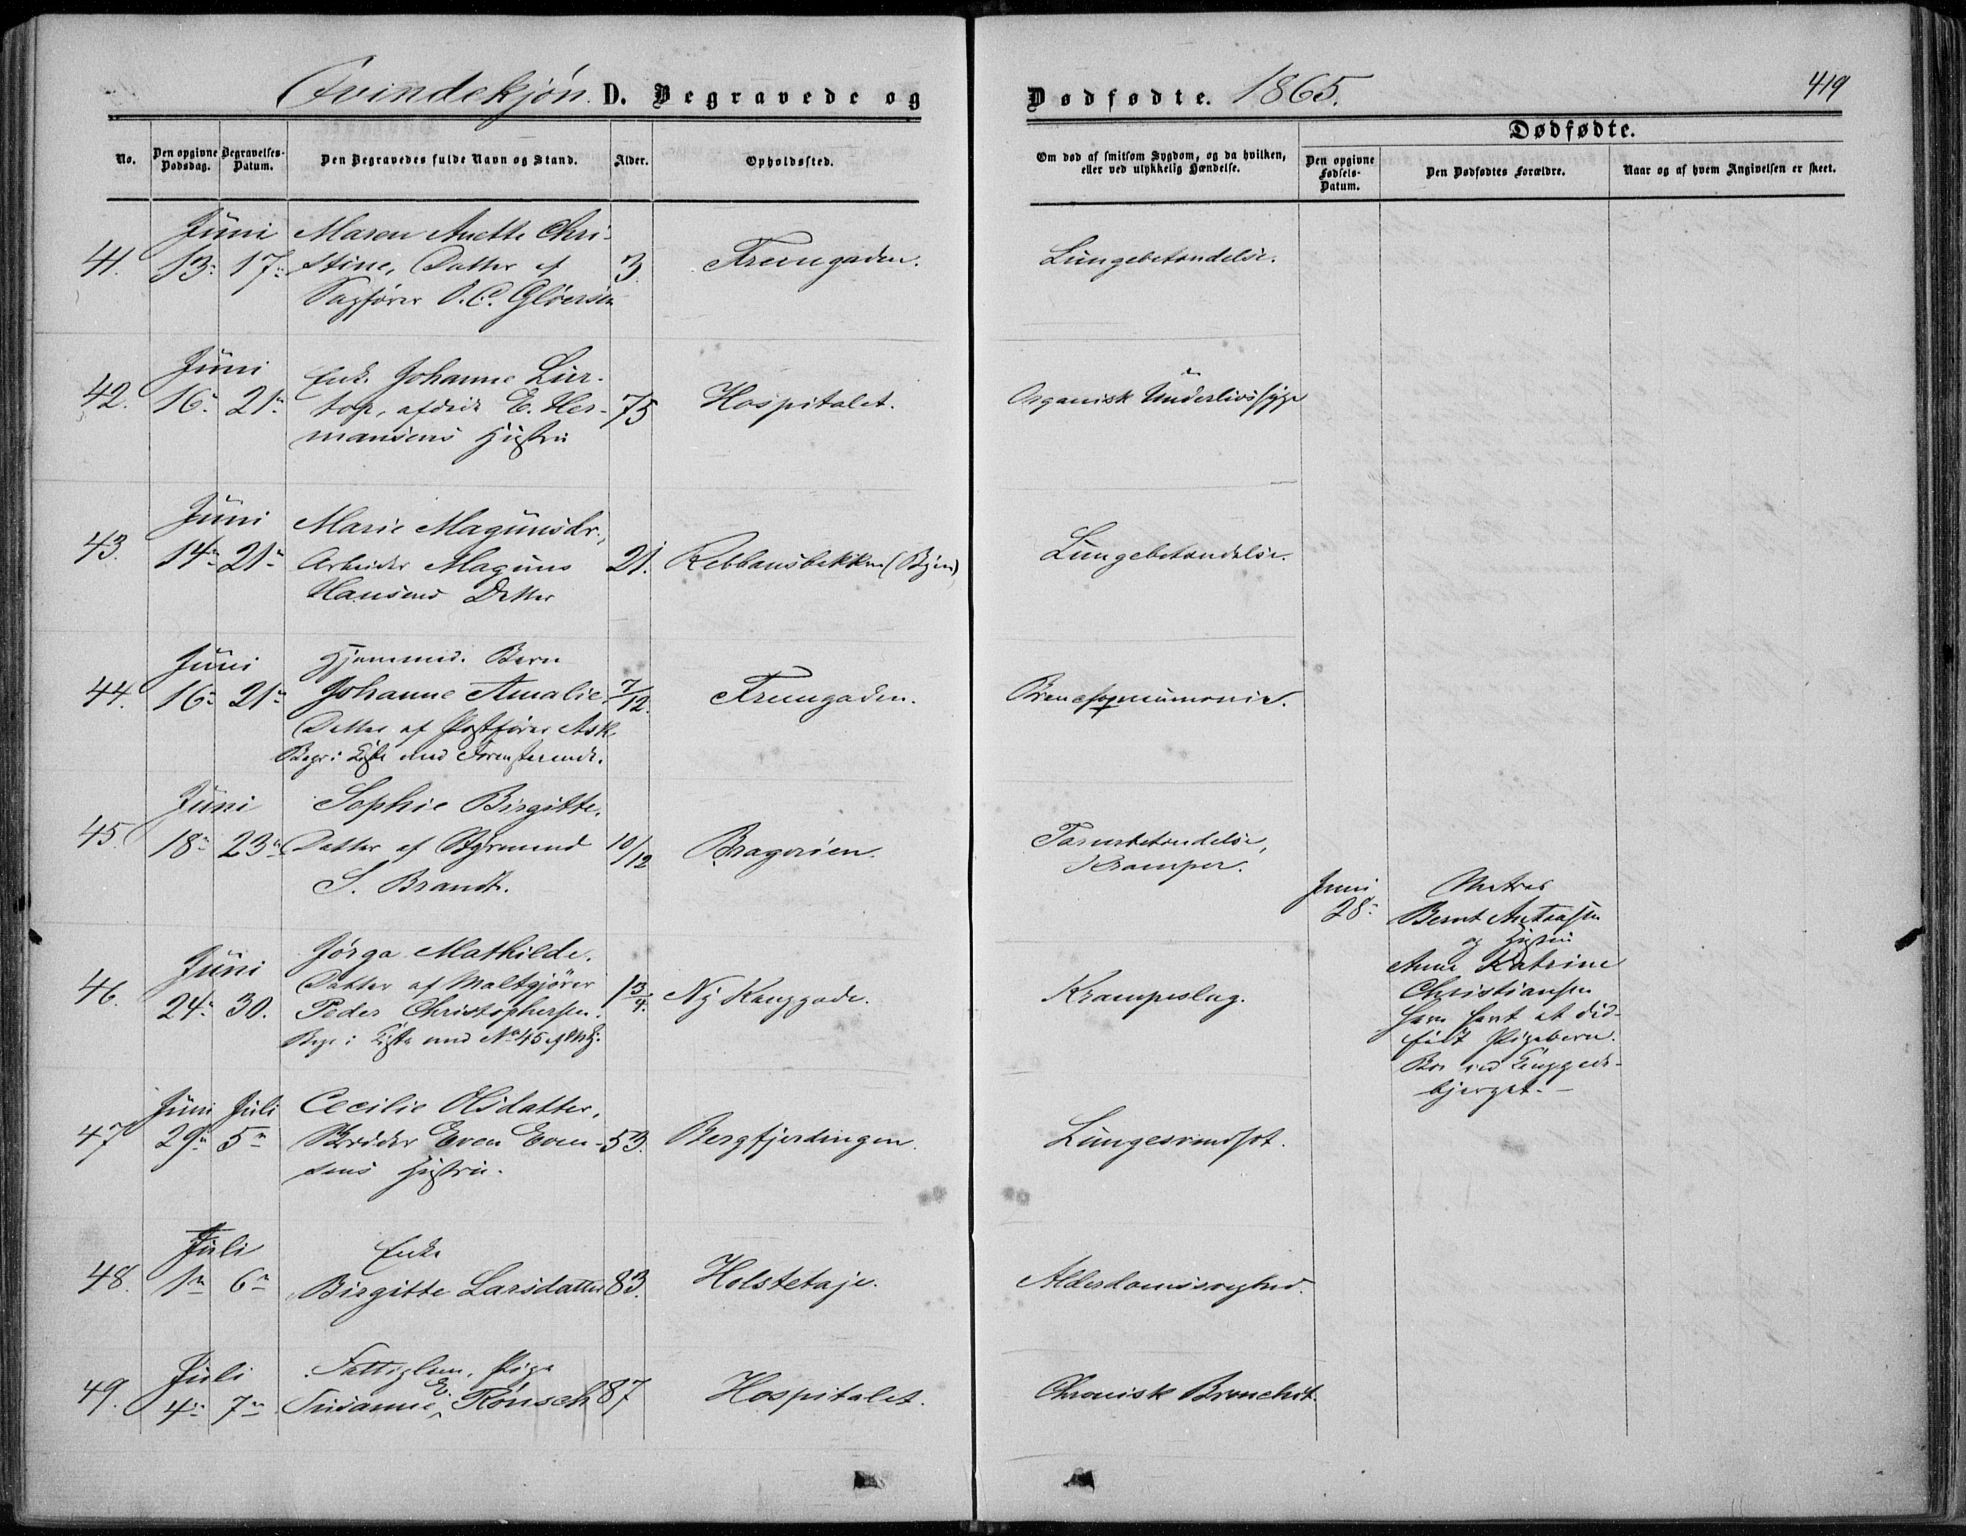 Qvindekjøn. D. Begravede og
Dødfødte. 1865.
419
No.
Den opgivne Dødsdag.
Begravelses-Datum.
Den Begravedes fulde Navn og Stand.
Alder.
Opholdssted.
Om død af smitsom Sygdom, og da hvilken, eller ved ulykkelig Hændelse.
Dødfødte.
Den opgivne Fødsels-Datum.
Den Dødfødtes Forældre.
Naar og af hvem Angivelsen er skeet.
Juni Maren Anette Chri-
41. 13. 17. stine, Datter af 3 Lungebetændelse.
Sagfører O. C. Gløersen
Juni Enke Johanne
42. 16. 21. E. Her- 75 Hospitalet. Organisk Underlivssyge
mansens Hustru
Juni Marie Magnusdr.,
43. 14. 21. Arbeider Magnus 21. (Byen) Lungebetændelse.
Hansens Datter
Juni Hjemmed. Barn
44. 16. 21. Johanne Amalie, 7/12. Broncho pneumonie.
Datter af Postfører Ask.
Begr. i Kiste med Foranstaaende.
Juni Sophie Birgitte,
45. 18. 23. Datter af Styrmand 10/12 Bragerøen. Tarmbetændelse,
S. Brandt. Kramper.
Juni
28.
Bernt
og Hustru
Anne Katrine
Christiansen
have havt et død-
født Pigebarn.
Bor ved
bjerget.
Jørga Mathilde,
Juni Datter af Maltgjører
46. 24. 30. Peder Christophersen. 1 3/4. Ny Kanggade. Krampeslag.
Begr. i Kiste med No 45 af Mkj.
Juni Juli Cecilie Olsdatter,
47 29. 5. Even Even- 53. Bergfjerdingen. Lungesvindsot.
sens Hustru.
Juli Enke
48. 1. 6. Birgitte Larsdatter 83. Alderdomssvaghed.
Juli Fattiglem, Pige
49. 4. 7. Susanne E. Rönsch 87 Hospitalet. Chronisk Bronchit.